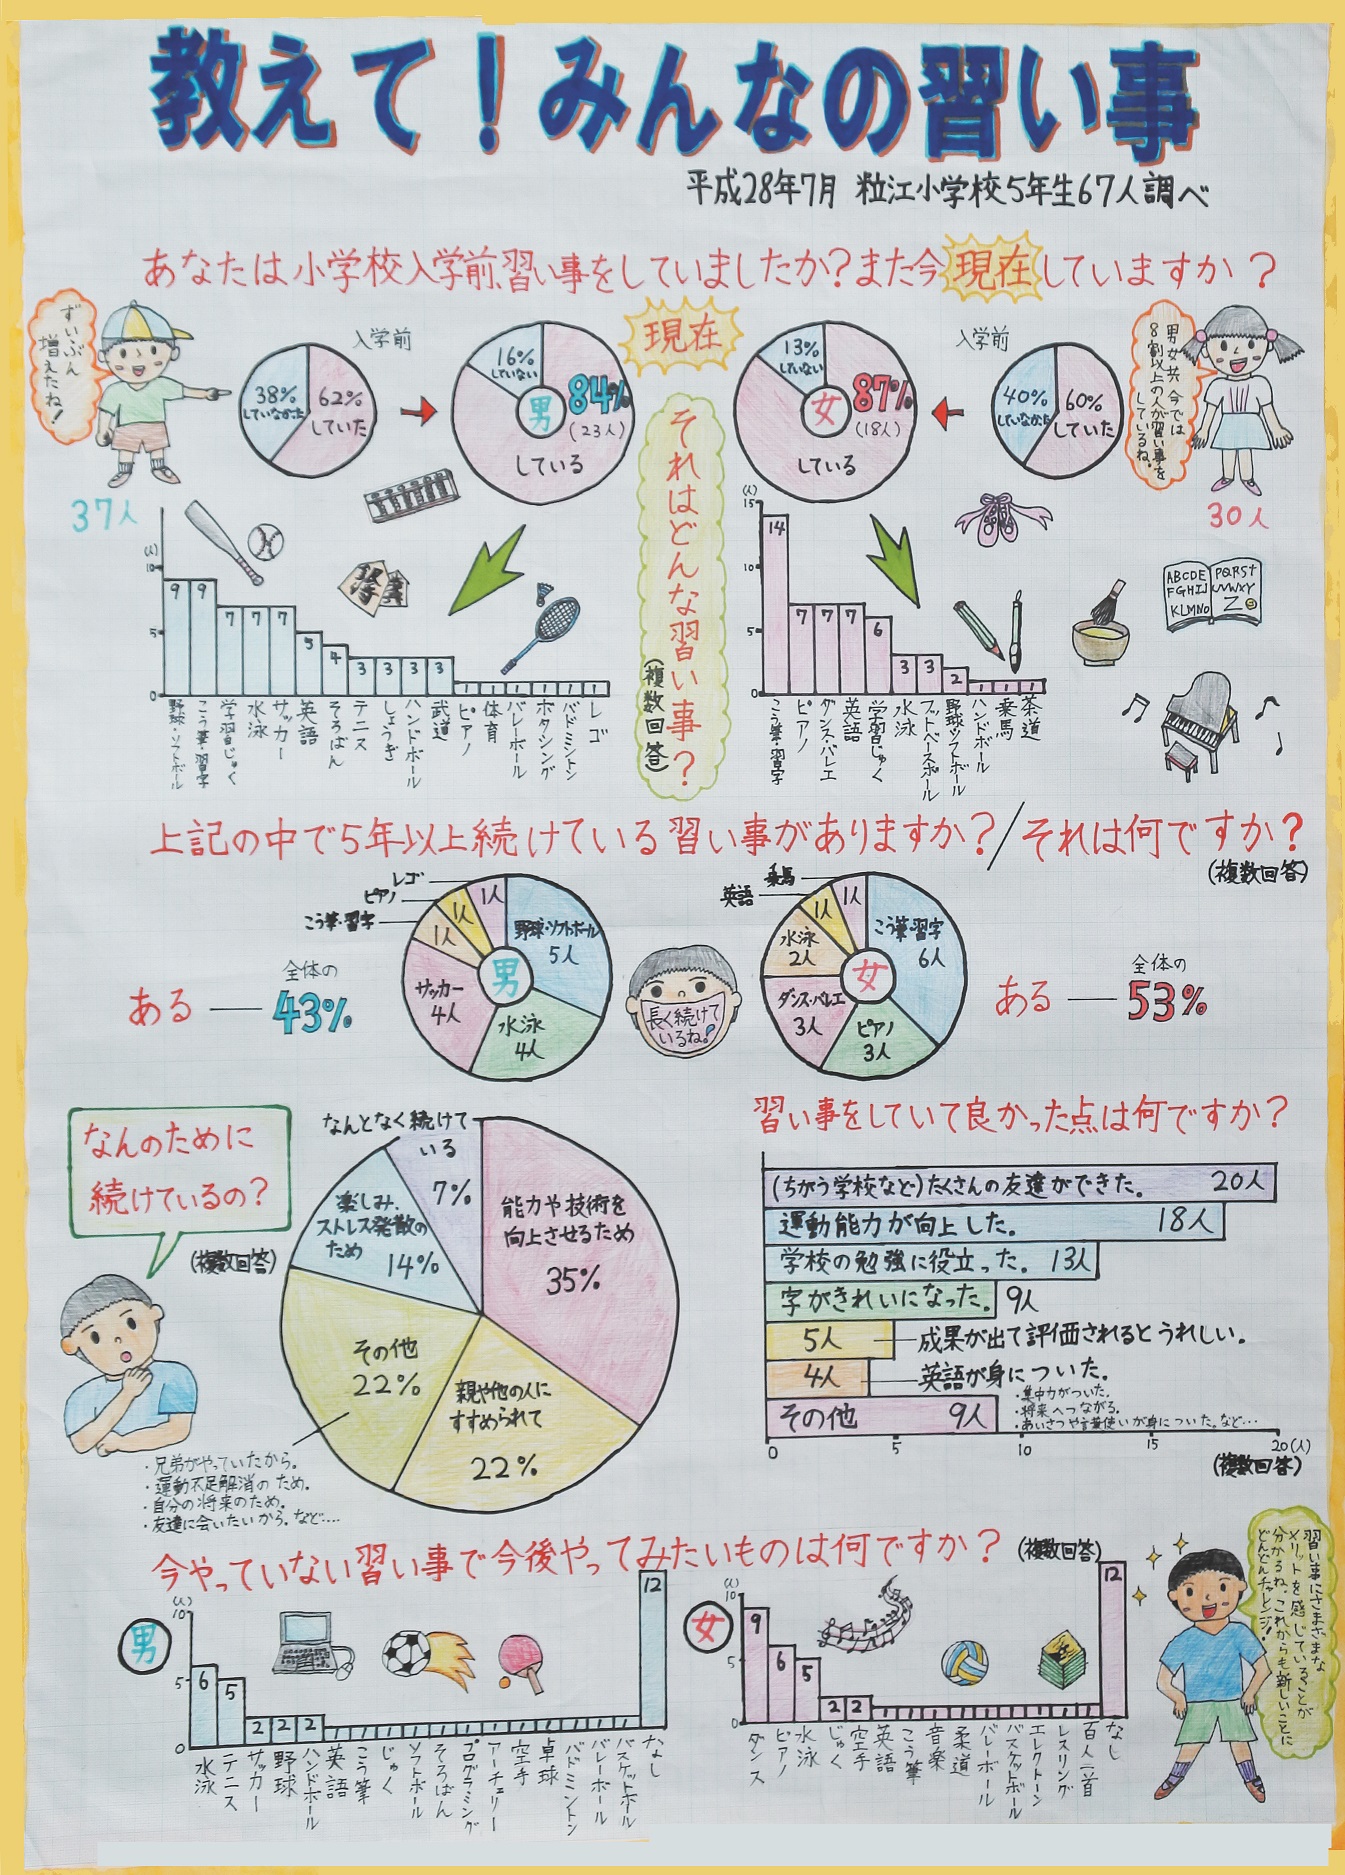 教えて!みんなの習い事
平成28年7月 粒江小学校5年生67人調べ
あなたは小学校入学前、習い事をしていましたか?また今現在していますか?
ずいぶん
増えたね!
入学前
38%
していなかった
62%
していた
16%
していない
男
84%
(23人)
している
現在
13%
していない
女
87%
(18人)
している
入学前
40%
していなかった
60%
していた
男女共今では
8割以上の人が習い事を
しているね。
37人
30人
それはどんな習い事?
(複数回答)
(人)
10
5
0
9
9
7
7
7
5
4
3
3
3
3
1
1
1
1
1
1
野球・ソフトボール
こう筆・習字
学習じゅく
水泳
サッカー
英語
そろばん
テニス
しょうぎ
ハンドボール
武道
ピアノ
体育
バレーボール
ボタシング
バドミントン
レゴ
(人)
15
10
5
0
14
7
7
7
6
3
3
2
1
1
1
こう筆・習字
ピアノ
ダンス・バレエ
英語
学習じゅく
水泳
フットベースボール
野球・ソフトボール
ハンドボール
乗馬
茶道
ABCDE
FGHIJ
KLMNO
PQRST
UVWXY
Z
上記の中で5年以上続けている習い事がありますか?/それは何ですか?
(複数回答)
ある
全体の
43%
レゴ
ピアノ
こう筆・習字
1人
1人
1人
野球・ソフトボール
5人
サッカー
4人
水泳
4人
男
長く続けて
いるね!
乗馬
英語
1人
1人
水泳
2人
こう筆・習字
6人
ダンス・バレエ
3人
ピアノ
3人
女
ある
全体の
53%
なんのために
続けているの?
(複数回答)
なんとなく続けて
いる
7%
楽しみ、
ストレス発散の
ため
14%
能力や技術を
向上させるため
35%
その他
22%
親や他の人に
すすめられて
22%
・兄弟がやっていたから。
・運動不足解消のため。
・自分の将来のため。
・友達に会いたいから。など…
習い事をしていて良かった点は何ですか?
(ちがう学校など)たくさんの友達ができた。 20人
運動能力が向上した。 18人
学校の勉強に役立った。 13人
字がきれいになった。 9人
5人 成果が出て評価されるとうれしい。
4人 英語が身についた。
その他 9人
・集中力がついた。
・将来へつながる。
・あいさつや言葉使いが身についた。など…
0 5 10 15 20(人)
(複数回答)
今やっていない習い事で今後やってみたいものは何ですか?
(複数回答)
男
(人)
10
5
0
6
5
2
2
2
12
水泳
テニス
サッカー
野球
ハンドボール
英語
こう筆
じゅく
ソフトボール
そろばん
プログラミング
アーチェリー
空手
卓球
バドミントン
バレーボール
バスケットボール
なし
女
(人)
10
5
0
9
6
5
2
2
12
ダンス
ピアノ
水泳
じゅく
空手
英語
こう筆
音楽
柔道
バレーボール
バスケットボール
エレクトーン
レスリング
百人一首
なし
習い事にさまざまな
メリットを感じていることが
分かるね。これからも新しいことに
どんどんチャレンジ!